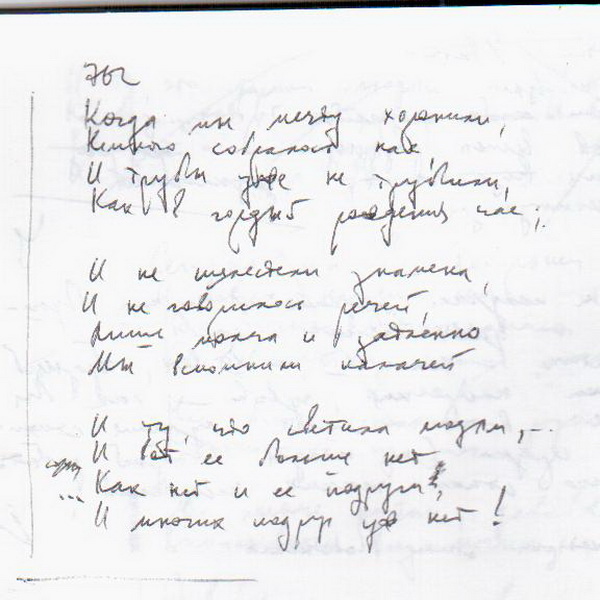 762
Когда мы мечту хоронили,
Немного собралось нас,
И трубы уже не трубили,
Как в гордый рождения час;.
И не шелестели знамена,
И не говорилось речей,
Лишь мрачно и затаённо
Мы вспомнили палачей
И ту, что светила людям,...
И вот ее больше нет
...
Как нет и ее подруги,
И многих подруг уж нет!